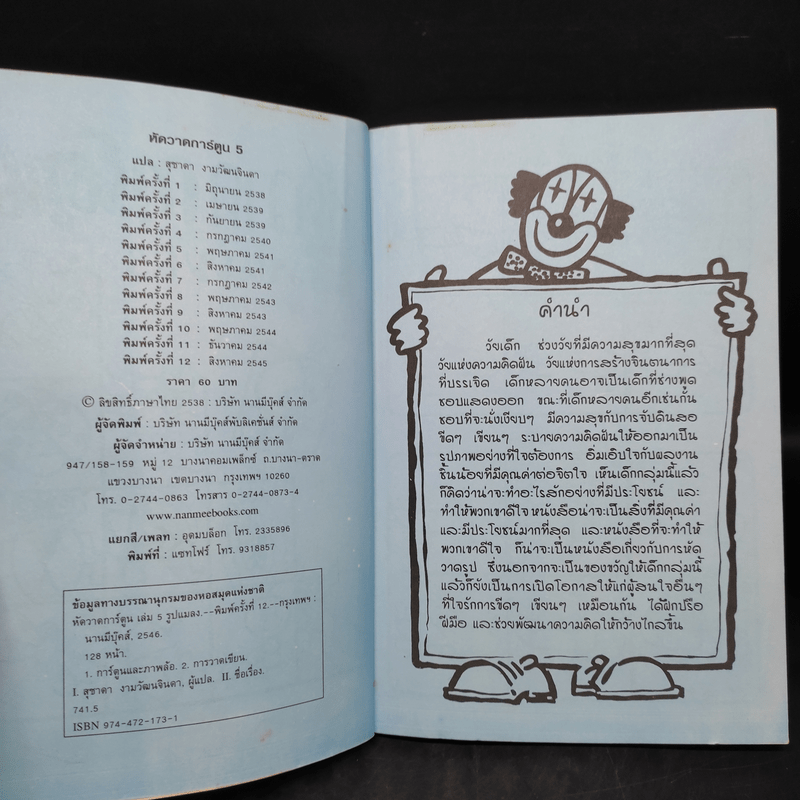 หัดวาดการ์ตูน 5
แปล : สุชาดา งามวัฒนจินดา
พิมพ์ครั้งที่ 1 : มิถุนายน 2538
พิมพ์ครั้งที่ 2 : เมษายน 2539
พิมพ์ครั้งที่ 3 : กันยายน 2539
พิมพ์ครั้งที่ 4 : กรกฎาคม 2540
พิมพ์ครั้งที่ 5 : พฤษภาคม 2541
พิมพ์ครั้งที่ 6 : สิงหาคม 2541
พิมพ์ครั้งที่ 7 : กรกฎาคม 2542
พิมพ์ครั้งที่ 8 : พฤษภาคม 2543
พิมพ์ครั้งที่ 9 : สิงหาคม 2543
พิมพ์ครั้งที่ 10 : พฤษภาคม 2544
พิมพ์ครั้งที่ 11 : ธันวาคม 2544
พิมพ์ครั้งที่ 12 : สิงหาคม 2545
ราคา 60 บาท
© ลิขสิทธิ์ภาษาไทย 2538 : บริษัท นานมีบุ๊คส์ จำกัด
ผู้จัดพิมพ์ : บริษัท นานมีบุ๊คส์พับลิเคชั่นส์ จำกัด
ผู้จัดจำหน่าย : บริษัท นานมีบุ๊คส์ จำกัด
947/158-159 หมู่ 12 บางนาคอมเพล็กซ์ ถ.บางนา-ตราด
แขวงบางนา เขตบางนา กรุงเทพฯ 10260
โทร. 0-2744-0863 โทรสาร 0-2744-0873-4
www.nanmeebooks.com
แยกสี/เพลท : อุดมบล็อก โทร. 2335896
พิมพ์ที่ : แซทโฟร์ โทร. 9318857
ข้อมูลทางบรรณานุกรมของหอสมุดแห่งชาติ
หัดวาดการ์ตูน เล่ม 5 รูปแมลง.--พิมพ์ครั้งที่ 12.--กรุงเทพฯ :
นานมีบุ๊คส์, 2546.
128 หน้า.
1. การ์ตูนและภาพล้อ. 2. การวาดเขียน.
I. สุชาดา งามวัฒนจินดา, ผู้แปล. II. ชื่อเรื่อง.
741.5
ISBN 974-472-173-1
คำนำ
วัยเด็ก ช่วงวัยที่มีความสุขมากที่สุด
วัยแห่งความคิดฝัน วัยแห่งการสร้างจินตนาการ
ที่บรรเจิด เด็กหลายคนอาจเป็นเด็กที่ช่างพูด
ชอบแสดงออก ขณะที่เด็กหลายคนอีกเช่นกัน
ชอบที่จะนั่งเงียบๆ มีความสุขกับการจับดินสอ
ขีดๆ เขียนๆ ระบายความคิดฝันให้ออกมาเป็น
รูปภาพอย่างที่ใจต้องการ อิ่มเอิบใจกับผลงาน
ชิ้นน้อยที่มีคุณค่าต่อจิตใจ เห็นเด็กกลุ่มนี้แล้ว
ก็คิดว่าน่าจะทำอะไรสักอย่างที่มีประโยชน์ และ
ทำให้พวกเขาดีใจ หนังสือน่าจะเป็นสิ่งที่มีคุณค่า
และมีประโยชน์มากที่สุด และหนังสือที่จะทำให้
พวกเขาดีใจ ก็น่าจะเป็นหนังสือเกี่ยวกับการหัด
วาดรูป ซึ่งนอกจากจะเป็นของขวัญให้เด็กกลุ่มนี้
แล้วก็ยังเป็นการเปิดโอกาสให้แก่ผู้สนใจอื่นๆ
ที่ใจรักการขีดๆ เขียนๆ เหมือนกัน ได้ฝึกปรือ
ฝีมือ และช่วยพัฒนาความคิดให้กว้างไกลขึ้น